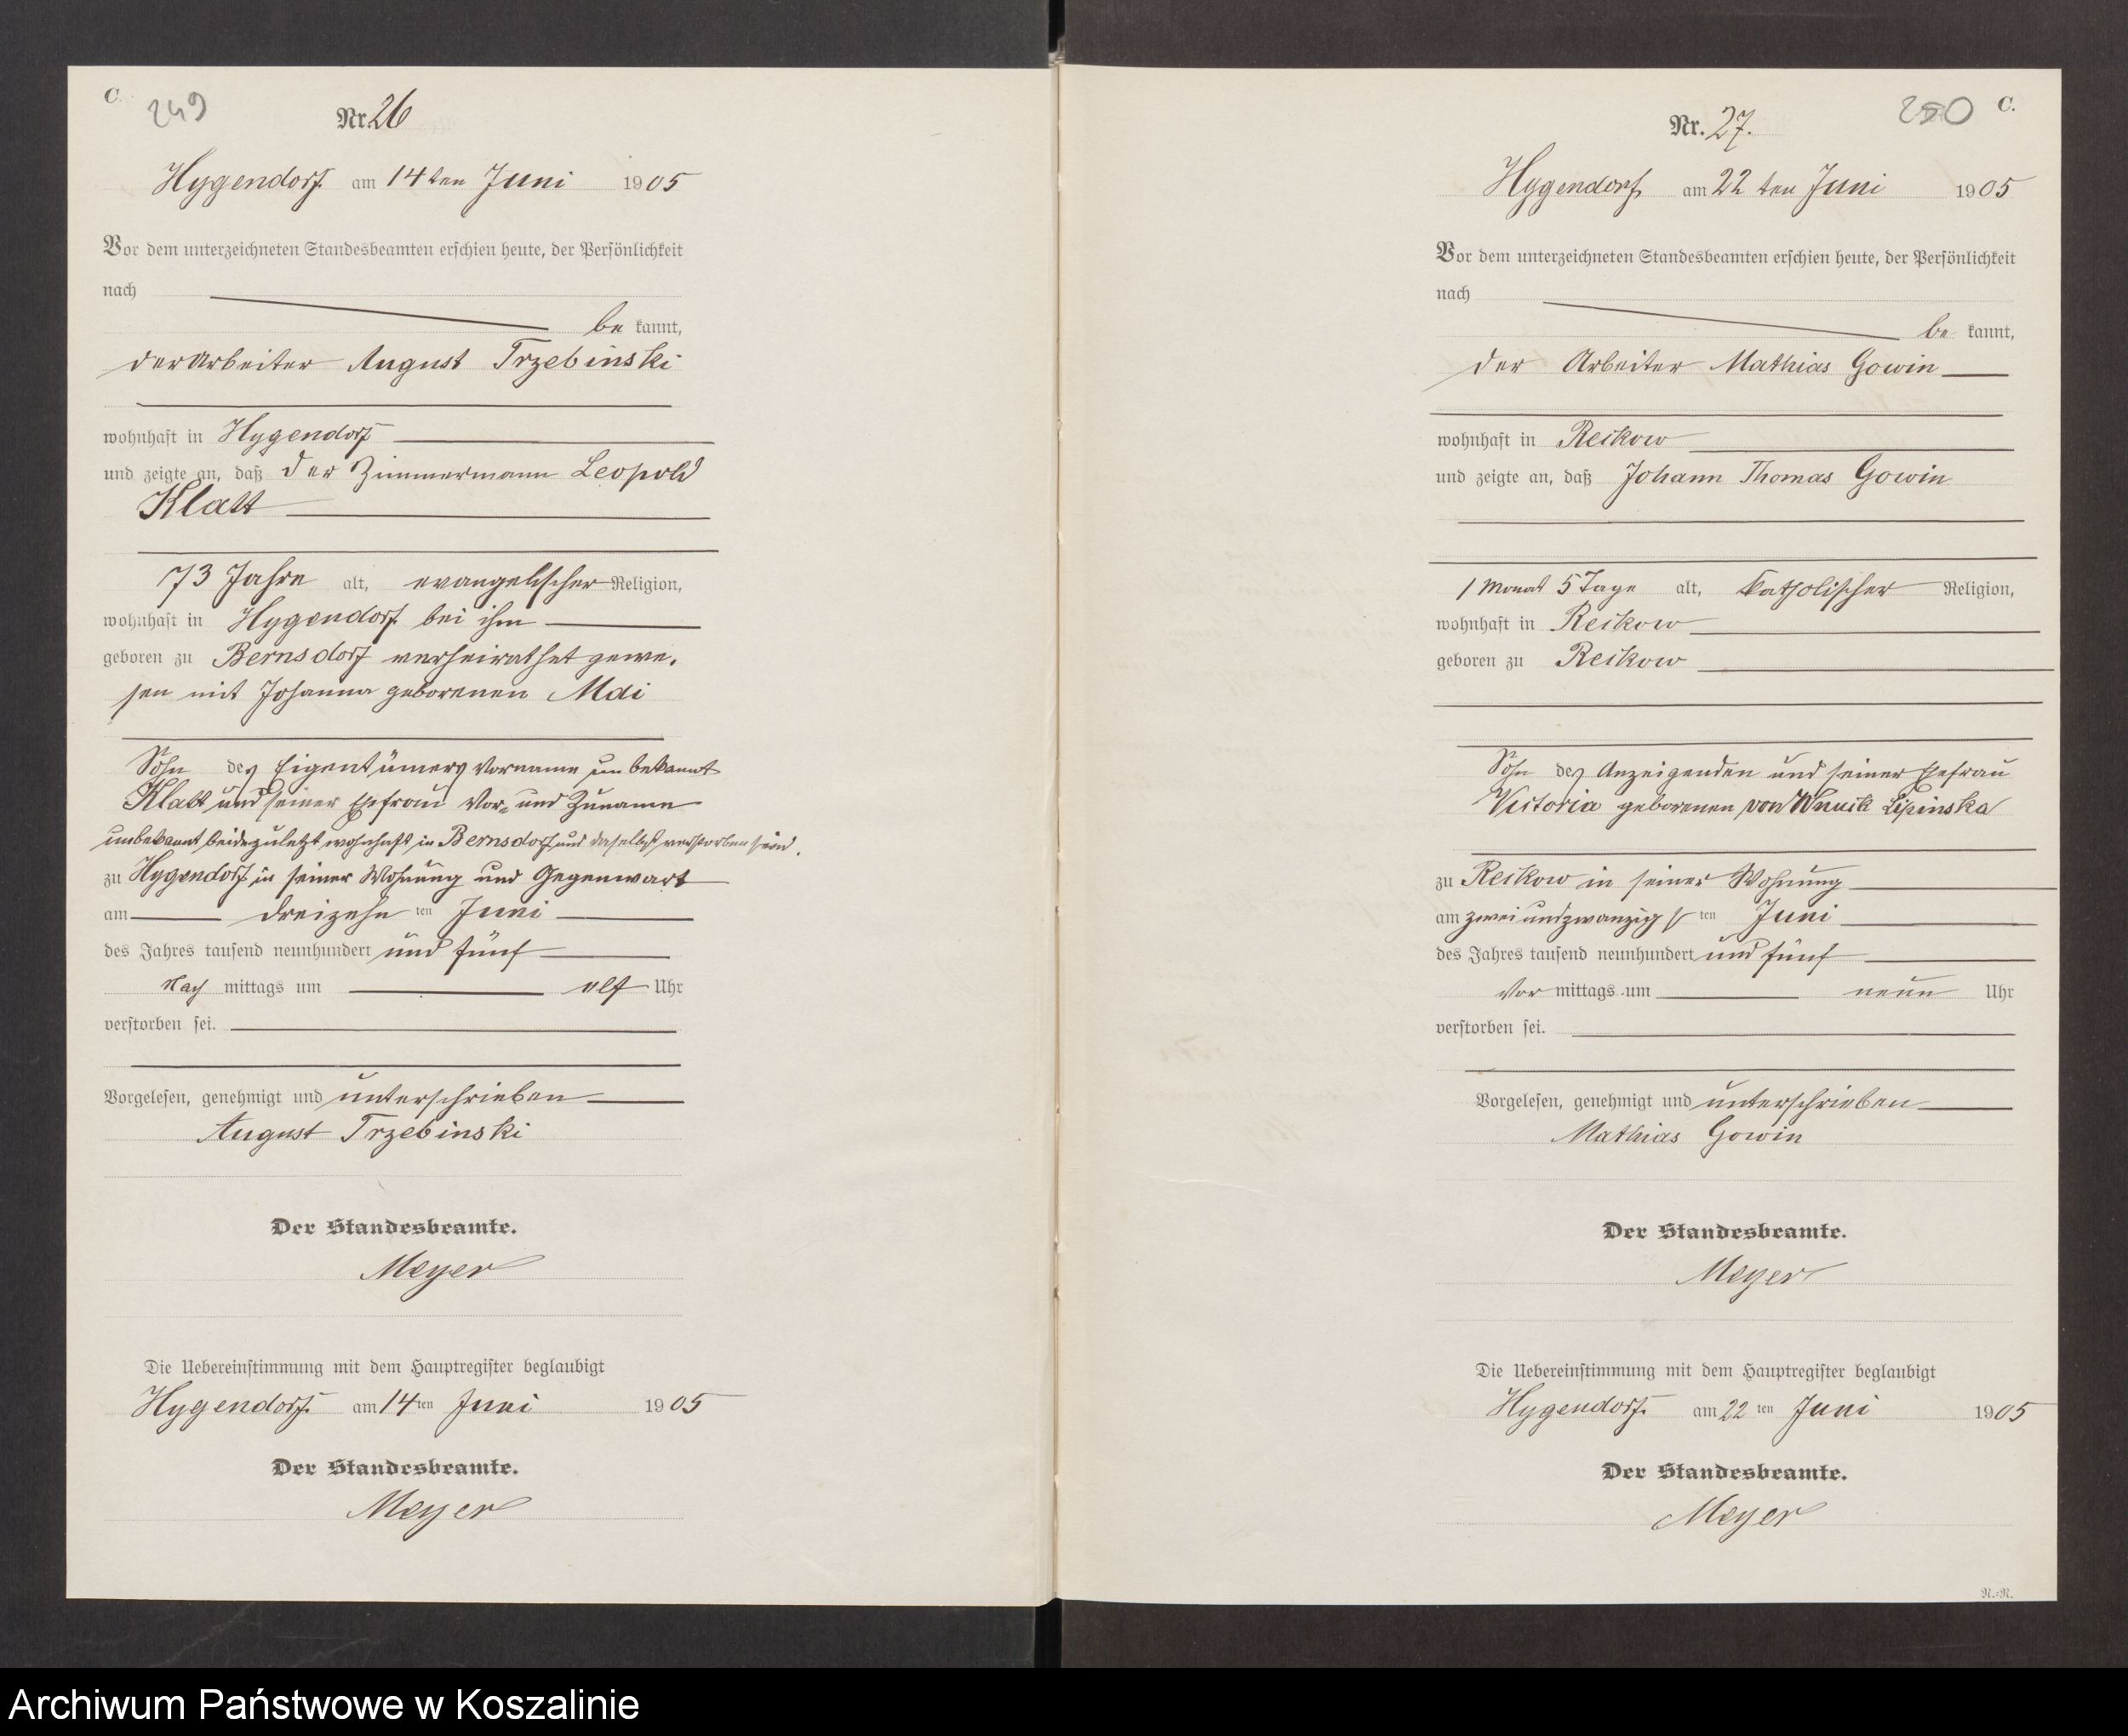 C.
249
Nr. 26
Hygendorf am 14ten Juni 1905
Vor dem unterzeichneten Standesbeamten erschien heute, der Persönlichkeit
nach
be kannt,
der Arbeiter August Trzebinski
wohnhaft in Hygendorf
und zeigte an, daß der Zimmermann Leopold
Klatt
73 Jahre alt, evangelischer Religion,
wohnhaft in Hygendorf bei ihm
geboren zu Bernsdorf verheirathet gewe-
sen mit Johanna geborenen Mai
Sohn des Eigentümers Vorname unbekannt
Klatt und seiner Ehefrau Vor- und Zuname
unbekannt beide zuletzt wohnhaft in Bernsdorf und daselbst verstorben sind.
zu Hygendorf in seiner Wohnung und Gegenwart
am dreizehn ten Juni
des Jahres tausend neunhundert und fünf
Nach mittags um elf Uhr
verstorben sei.
Vorgelesen, genehmigt und unterschrieben
August Trzebinski
Der Standesbeamte.
Meyer
Die Uebereinstimmung mit dem Hauptregister beglaubigt
Hygendorf am 14ten Juni 1905
Der Standesbeamte.
Meyer
250 C.
Nr. 27.
Hygendorf am 22 ten Juni 1905
Vor dem unterzeichneten Standesbeamten erschien heute, der Persönlichkeit
nach
be kannt,
der Arbeiter Mathias Gowin
wohnhaft in Reikow
und zeigte an, daß Johann Thomas Gowin
1 Monat 5 Tage alt, katholischer Religion,
wohnhaft in Reikow
geboren zu Reikow
Sohn des Anzeigenden und seiner Ehefrau
Victoria geborenen von Wnuck Lipinska
zu Reikow in seiner Wohnung
am zwei und zwanzigs ten Juni
des Jahres tausend neunhundert und fünf
Vor mittags um neun Uhr
verstorben sei.
Vorgelesen, genehmigt und unterschrieben
Mathias Gowin
Der Standesbeamte.
Meyer
Die Uebereinstimmung mit dem Hauptregister beglaubigt
Hygendorf am 22 ten Juni 1905
Der Standesbeamte.
Meyer
R.-R.
Archiwum Państwowe w Koszalinie